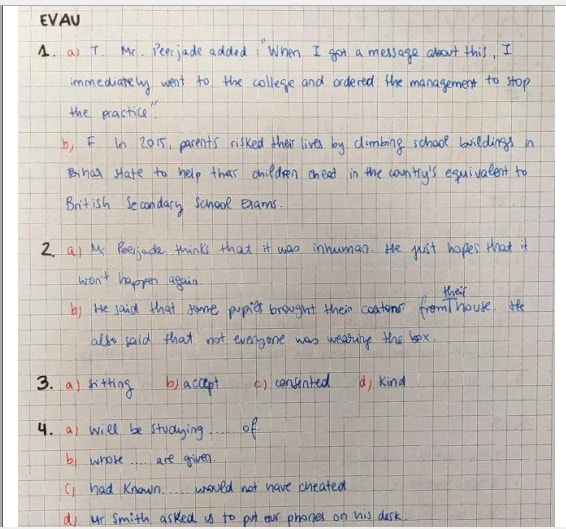 EVAU
1. a) T. Mr. Peerjade added: "When I got a message about this, I
immediately went to the college and ordered the management to stop
the practice".
b) F In 2015, parents risked their lives by climbing school buildings in
Bihar state to help their children cheat in the country's equivalent to
British Secondary School Exams.
2. a) Mr Peerjade thinks that it was inhuman. He just hopes that it
won't happen again.
their
b) He said that some pupils brought their cartons from house. He
also said that not everyone was wearing the box.
3. a) sitting b) accept c) consented d) Kind
4. a) will be studying ..... of.
b) whose .... are given.
c) had known .... would not have cheated
d) Mr Smith asked us to put our phones on his desk.